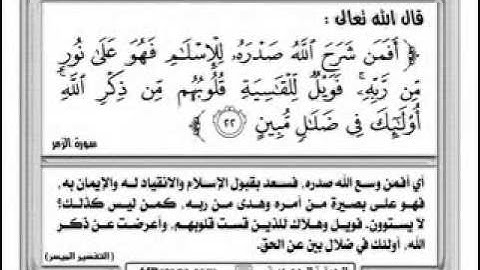 قال الله تعالى :
﴿ أَفَمَن شَرَحَ ٱللَّهُ صَدْرَهُۥ لِلْإِسْلَٰمِ فَهُوَ عَلَىٰ نُورٍ
مِّن رَّبِّهِۦ ۚ فَوَيْلٌ لِّلْقَٰسِيَةِ قُلُوبُهُم مِّن ذِكْرِ ٱللَّهِ ۚ
أُو۟لَٰٓئِكَ فِى ضَلَٰلٍ مُّبِينٍ ٢٢ ﴾
سورة الزمر
أي أفمن وسع الله صدره، فسعد بقبول الإسلام والانقياد له والإيمان به،
فهو على بصيرة من أمره وهدى من ربه، كمن ليس كذلك؟
لا يستوون. فويل وهلاك للذين قست قلوبهم، وأعرضت عن ذكر
الله، أولئك في ضلال بين عن الحق.
(التفسير الميسر)